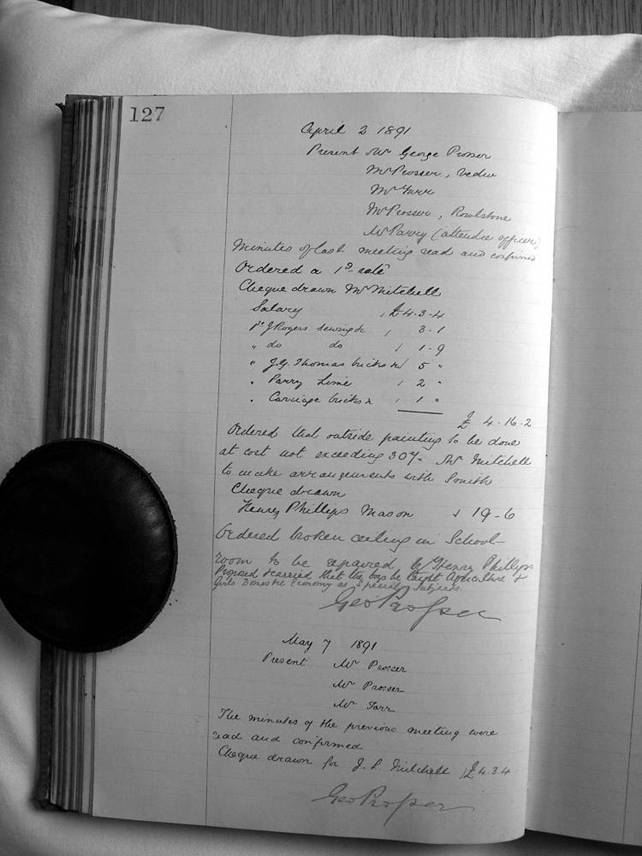 127
April 2 1891
Present Mr George Prosser
Mr Prosser, Vedw
Mr Farr
Mr Prosser, Rowlstone
Mr Parry (attendce officer)
Minutes of last meeting read and confirmed
Ordered a 1d rate
Cheque drawn Mr Mitchell
Salary , £4-3-4
pd J Rogers sewing &c , 3-1
" do do , 1-9
" J.G. Thomas bricks &c , 5 "
" Parry Lime , 2 "
" Carriage bricks &c , 1 "
£ 4-16-2
Ordered that outside painting to be done
at cost not exceeding 30/- Mr Mitchell
to make arrangements with Smith
Cheque drawn
Henry Phillips Mason 19-6
Ordered broken ceiling in School-
room to be repaired, by Henry Phillips
Proposed & carried that the boys be taught Agriculture &
Girls Domestic Economy as special subjects.
Geo Prosser
May 7 1891
Present Mr Prosser
Mr Prosser
Mr Farr
The minutes of the previous meeting were
read and confirmed
Cheque drawn for J. L. Mitchell £4.3.4
Geo Prosser